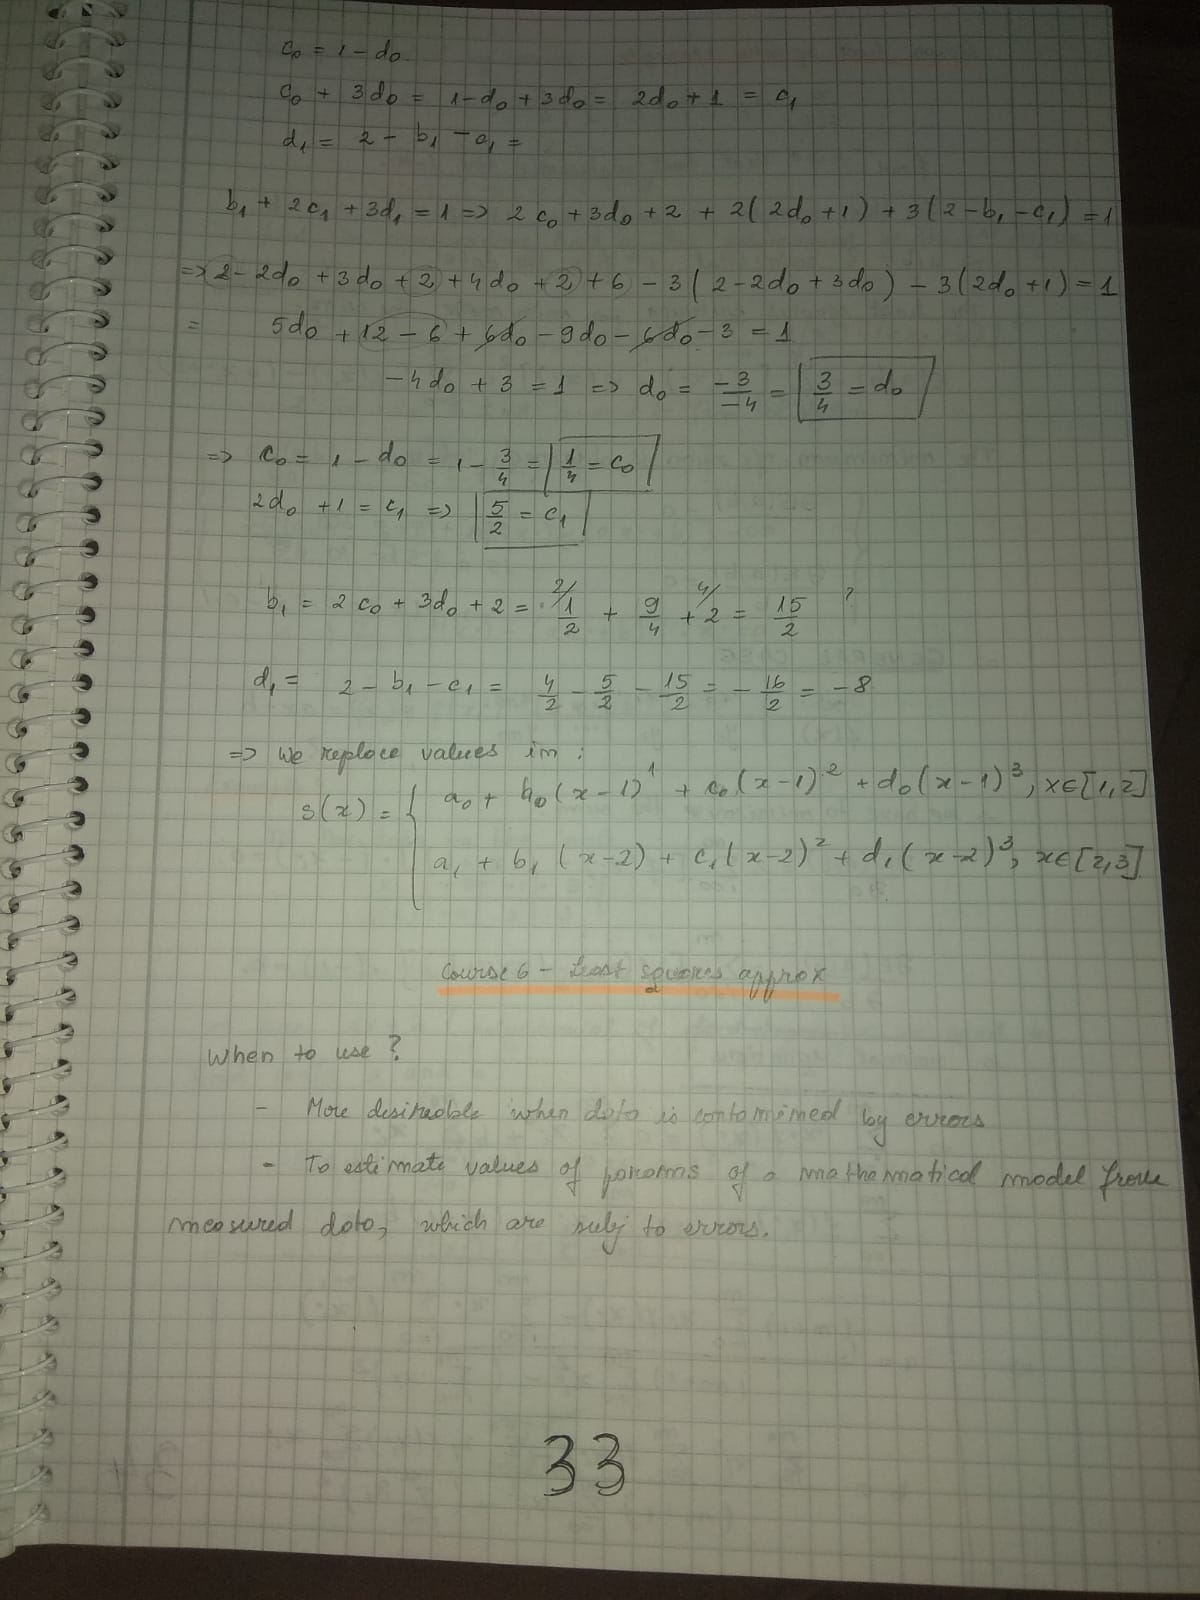 c₀ = 1 - d₀
c₀ + 3d₀ = 1 - d₀ + 3d₀ = 2d₀ + 1 = c₁
d₁ = 2 - b₁ - c₁ =
b₁ + 2c₁ + 3d₁ = 1 => 2c₀ + 3d₀ + 2 + 2(2d₀ + 1) + 3(2 - b₁ - c₁) = 1
=> 2 - 2d₀ + 3d₀ + 2 + 4d₀ + 2 + 6 - 3(2 - 2d₀ + 3d₀) - 3(2d₀ + 1) = 1
= 5d₀ + 12 - 6 + 6d₀ - 9d₀ - 6d₀ - 3 = 1
-4d₀ + 3 = 1 => d₀ = -3/-4 = 3/4 = d₀
=> c₀ = 1 - d₀ = 1 - 3/4 = 1/4 = c₀
2d₀ + 1 = c₁ => 5/2 = c₁
b₁ = 2c₀ + 3d₀ + 2 = ²⁄ 1/2 + 9/4 + ⁴⁄ 2 = 15/2 ?
d₁ = 2 - b₁ - c₁ = 4/2 - 5/2 - 15/2 = - 16/2 = -8
=> we replace values in :
s(x) = { a₀ + b₀(x-1)¹ + c₀(x-1)² + d₀(x-1)³, x∈[1,2]
a₁ + b₁(x-2) + c₁(x-2)² + d₁(x-2)³, x∈[2,3]
Course 6 - Least squares approx
When to use ?
- More desireable when data is contamined by errors
- To estimate values of params of a mathematical model from
measured data, which are subj to errors.
33